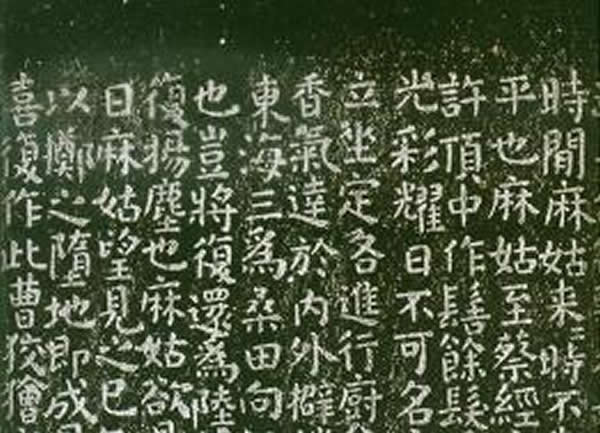 時間麻姑来〻時不
平也麻姑至蔡經
許頂中作髻餘髮
光彩耀日不可名
立坐定各進行廚
香氣達於内外擗
東海三爲桑田向
也豈將復還爲陸
復揚塵也麻姑欲
日麻姑望見之已
以擲之墮地即成
喜復作此曹狡獪